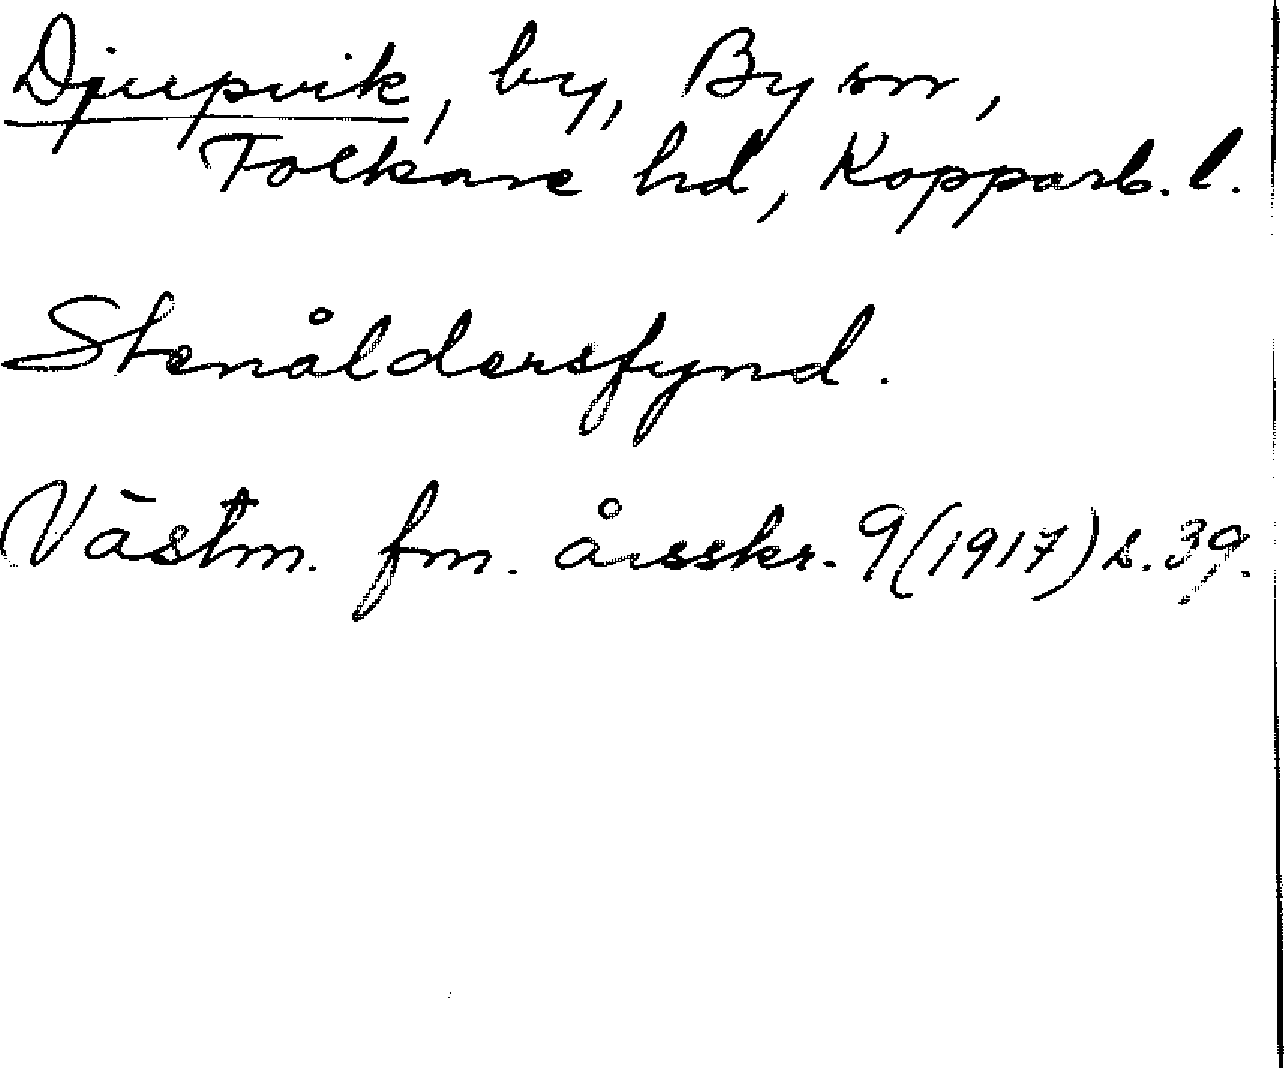 Djupvik, by, By sn,
Folkare hd, Kopparb. l.
Stenåldersfynd.
Västm. fm. årsskr. 9 (1917) s. 39.